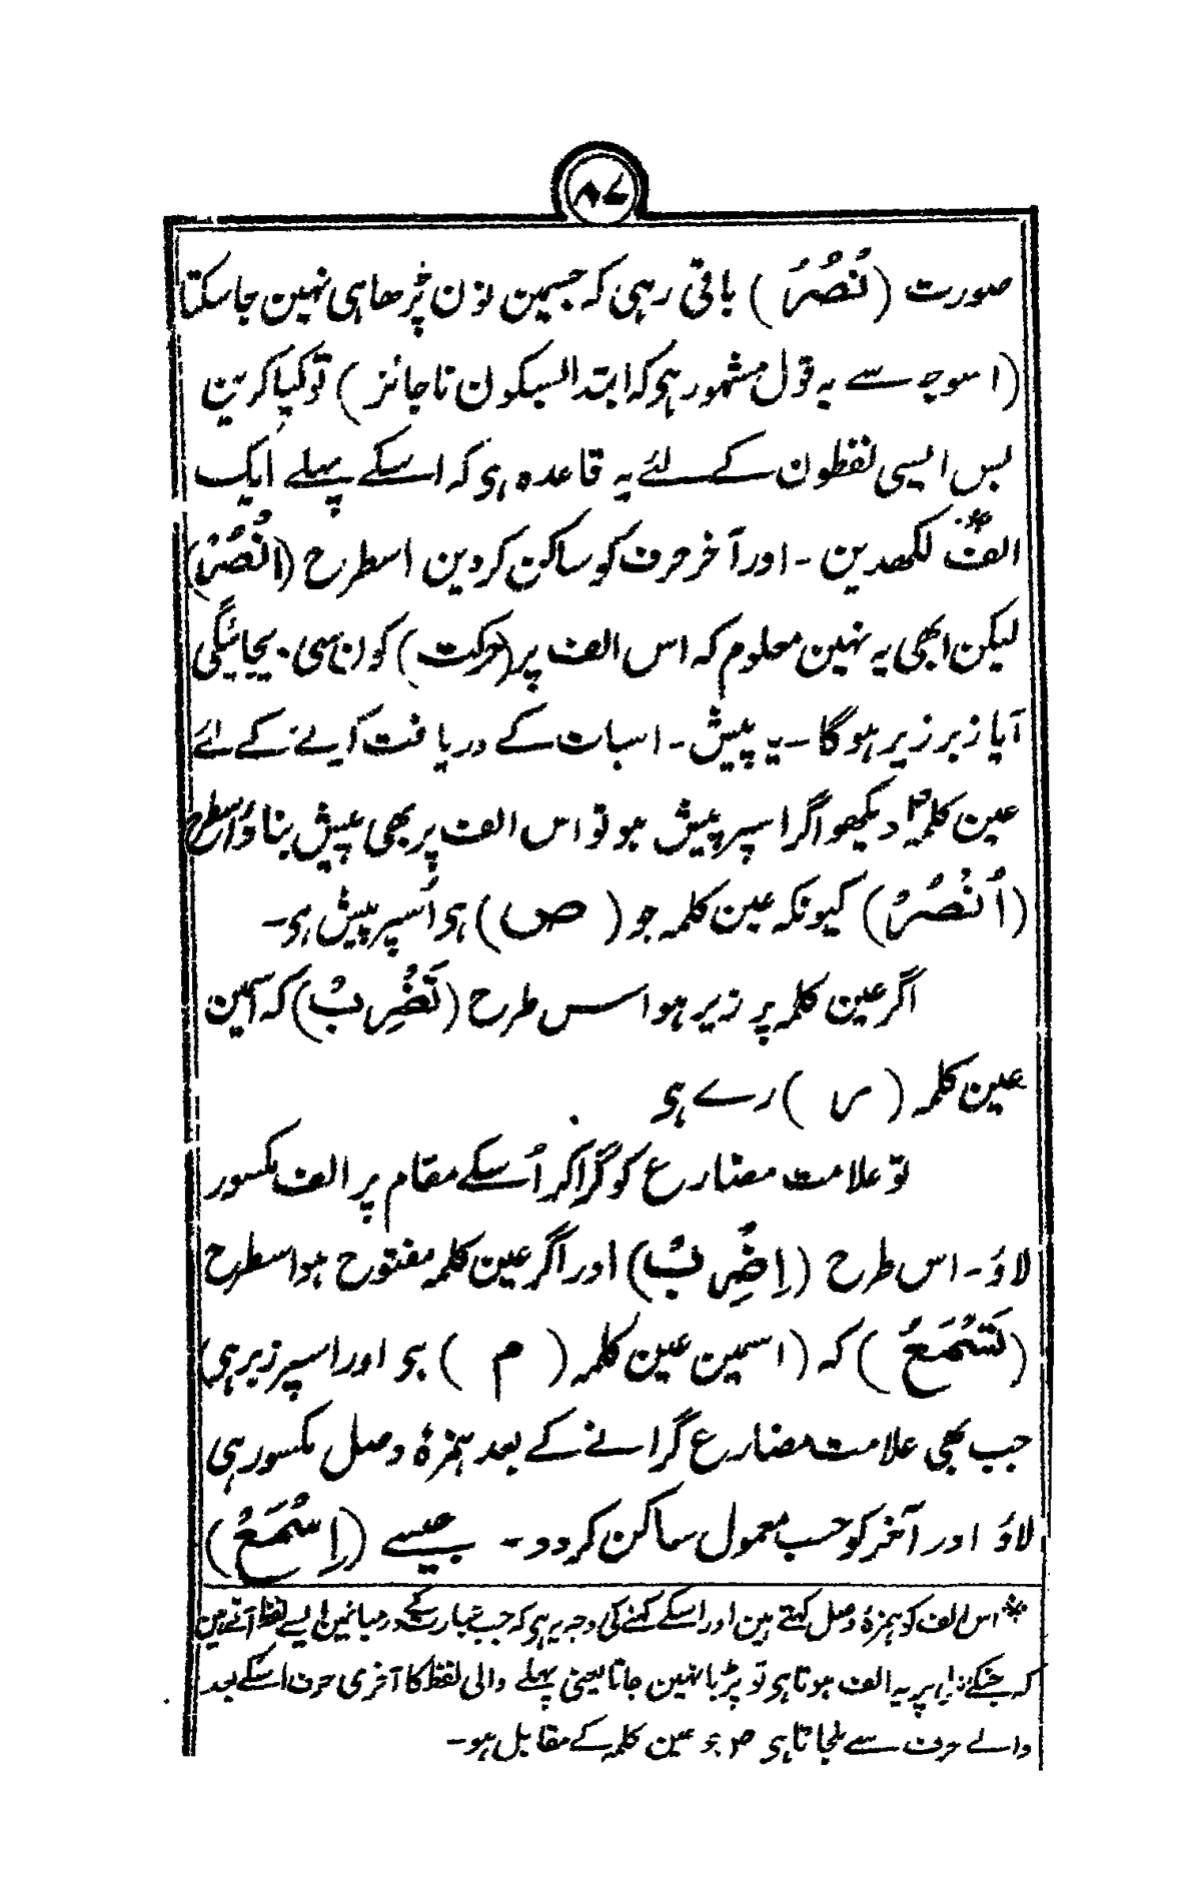 ۸۷
صورت (نْصُرُ) باقی رہی کہ جسمین نون پڑھا ہی نہین جاسکتا
(اسوجہ سے یہ قول مشہور ہی کہ ابتدا السبکون ناجائز) تو کیا کرین
بس ایسی لفظون کے لئے یہ قاعدہ ہی کہ اسکے پہلے ایک
الف* لکھدین - اور آخر حرف کو ساکن کردین اسطرح (انْصُرْ)
لیکن ابھی یہ نہین معلوم کہ اس الف پر (حرکت) کون سی دیجائیگی
آیا زبر زیر ہوگا - یہ پیش - اسبات کے دریافت کرنے کے لئے
عین کلمہ دیکھو اگر اسپر پیش ہو تو اس الف پر بھی پیش بناؤ اسطرح
(اُنْصُرْ) کیونکہ عین کلمہ جو (ص) ہو اُسپر پیش ہو -
اگر عین کلمہ پر زیر ہو اسس طرح (تَضْرِبُ) کہ اسمین
عین کلمہ (ر) رے ہی
تو علامت مضارع کو گرا کر اُسکے مقام پر الف مکسور
لاؤ - اس طرح (اِضْرِبْ) اور اگر عین کلمہ مفتوح ہو اسطرح
(تَسْمَعُ) کہ (اسمین عین کلمہ (م) ہو اور اسپر زبر ہی)
جب بھی علامت مضارع گرانے کے بعد ہمزۂ وصل مکسور ہی
لاؤ اور آخر کو حسب معمول ساکن کردو - جیسے (اِسْمَعْ)
* اس الف کو ہمزۂ وصل کہتے ہین اور اسکے کہنے کی وجہ یہ ہی کہ جب عبارت کے درمیانمین ایسے لفظ آتے ہین
کہ جنکے پر یہ الف ہوتا ہی تو پڑہا نہین جاتا یعنی پہلے والی لفظ کا آخری حرف اسکے بعد
والے حرف سے ملجاتا ہی ص جو عین کلمہ کے مقابل ہو -